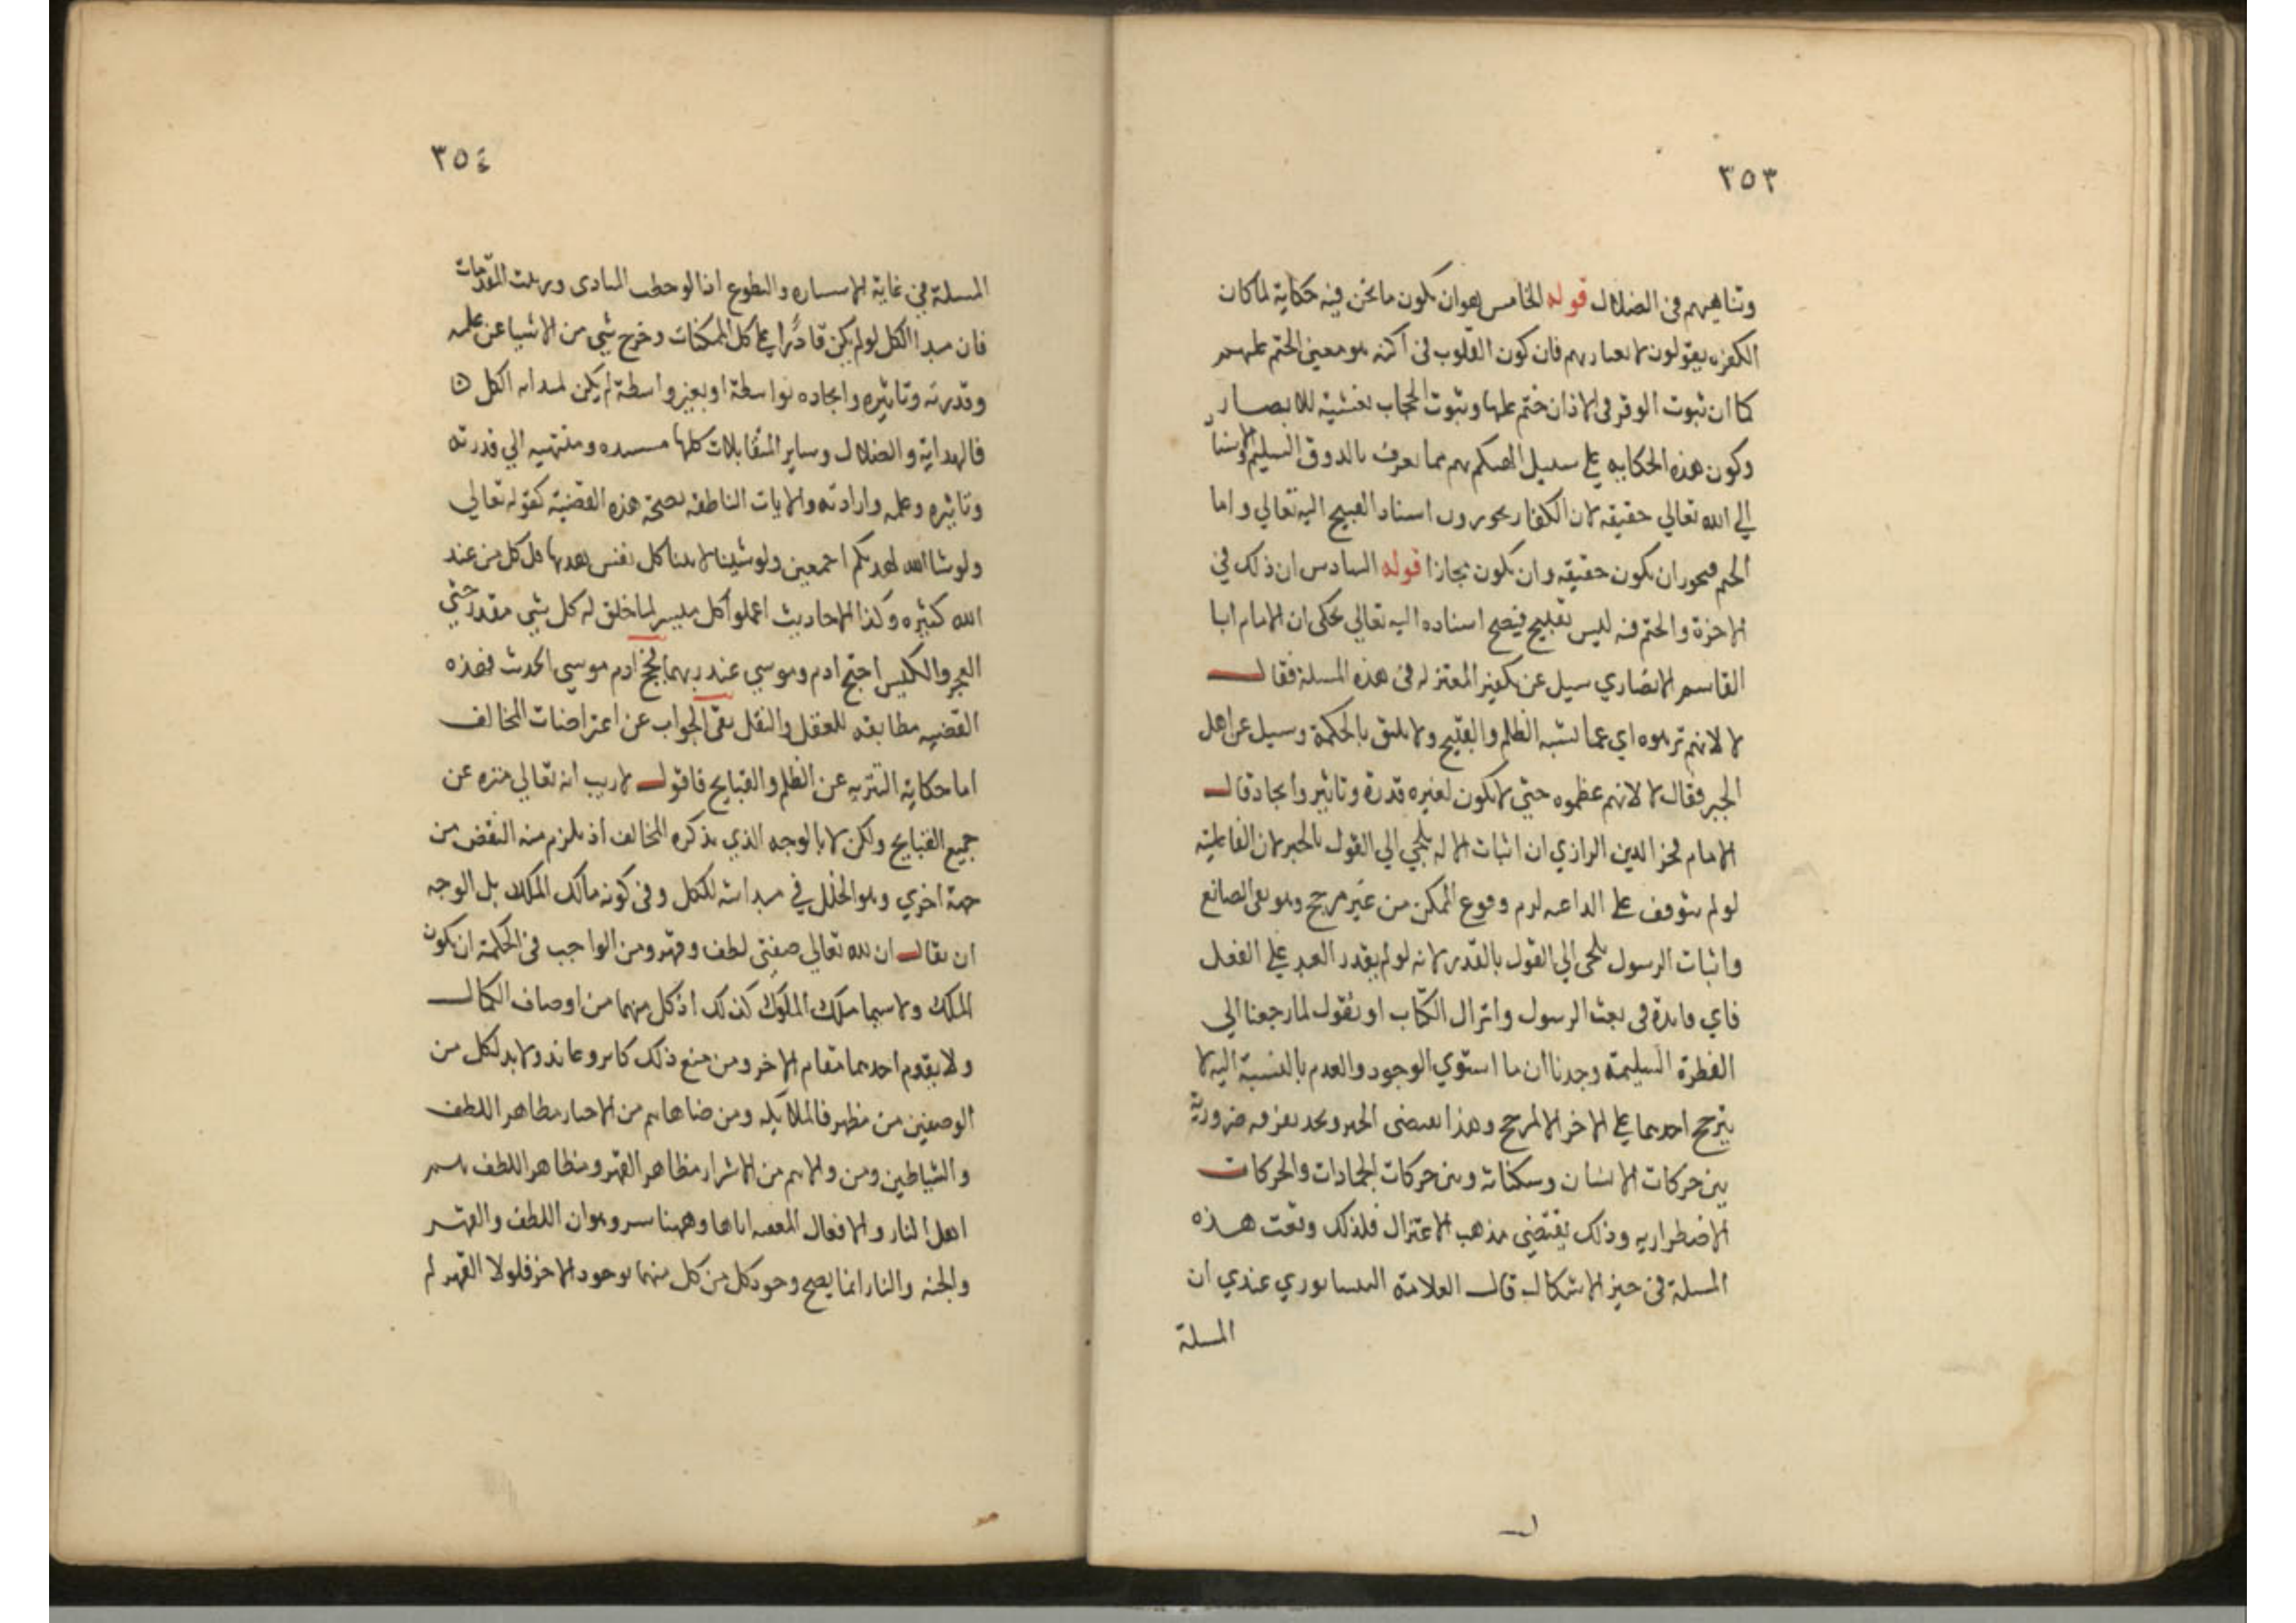 ٣٥٣
وتناهيهم في الضلال قوله الخامس هوان يكون ما نحن فيه حكاية لما كان
الكفره يقولون لا بعبارتهم فان كون القلوب في اكنه هو معني الختم عليهم
كما ان ثبوت الوقر في الاذان ختم عليها وثبوت الحجاب تغشية للابصار
وكون هذه الحكايه علي سبيل التهكم بهم مما يعرف بالذوق السليم والاسناد
الي الله تعالي حقيقه لان الكفار يجوزون اسناد القبيح اليه تعالي واما
الختم فيجوز ان يكون حقيقه وان يكون مجازا قوله السادس ان ذلك في
الاخرة والختم فيه ليس بقبيح فيصح اسناده اليه تعالي يحكي ان الامام ابا
القاسم الانصاري سيل عن تكفير المعتزله في هذه المسلة فقال
لا لانهم نزهوه اي عما يشبه الظلم والقبيح ولا يليق بالحكمة وسيل عن اهل
الجبر فقال لا لانهم عظموه حتي لا يكون لغيره قدرة وتاثير وايجاد قال
الامام فخر الدين الرازي ان اثبات الاله يلجي الي القول بالجبر لان الفاعلية
لو لم تتوقف علي الداعيه لزم وقوع الممكن من غير مرجح وهو نفي الصانع
واثبات الرسول يلجي الي القول بالقدر لانه لو لم يقدر العبد علي الفعل
فاي فايدة في بعث الرسول وانزال الكتاب او نقول لما رجعنا الي
الفطرة السليمة وجدنا ان ما استوي الوجود والعدم بالنسبة اليه لا
يترجح احدهما علي الاخر الا لمرجح وهذا يقتضي الجبر ونجد تفرقه ضرورية
بين حركات الانسان وسكناته وبين حركات الجمادات والحركات
الاضطراريه وذلك يقتضي مذهب الاعتزال فلذلك وقعت هذه
المسلة في حيز الاشكال قال العلامة النيسابوري عندي ان
المسلة
٣٥٤
المسلة في غاية الاستناره والسطوع اذا لوحظت المبادي ورتبت المقدمات
فان مبدا الكل لو لم يكن قادرا علي كل الممكنات وخرج شي من الاشيا عن علمه
وقدرته وتاثيره وايجاده بواسطة او بغير واسطة لم يكن لمبدايه الكل
فالهداية والضلال وساير المتقابلات كلها مستنده ومنتهيه الي قدرته
وتاثيره وعلمه وارادته والايات الناطقه بصحة هذه القضية كقوله تعالي
ولو شا الله لهديكم اجمعين ولو شينا لاتينا كل نفس هديها قل كل من عند
الله كثيره وكذا الاحاديث اعملوا كل ميسر لما خلق له كل شي مقدر حتي
العجز والكيس احتج ادم وموسي عند ربهما فحج ادم موسي الحدث فهذه
القضيه مطابقه للعقل والنقل بقي الجواب عن اعتراضات المخالف
اما حكاية التنزيه عن الظلم والقبايح فاقول لا ريب انه تعالي منزه عن
جميع القبايح ولكن لا بالوجه الذي يذكره المخالف اذ يلزم منه النقض من
جهة اخري وهو الخلل في مبدايته للكل وفي كونه مالك الملك بل الوجه
ان يقال ان لله تعالي صفتي لطف وقهر ومن الواجب في الحكمة ان يكون
الملك ولا سيما ملك الملوك كذلك اذ كل منهما من اوصاف الكمال
ولا يقوم احدهما مقام الاخر ومن منع ذلك كابر وعاند ولا بد لكل من
الوصفين من مظهر فالملائكه ومن ضاهاهم من الاخيار مظاهر اللطف
والشياطين ومن والاهم من الاشرار مظاهر القهر ومظاهر اللطف هم
اهل النار والافعال المعقبه اياها وههنا سر وهو ان اللطف والقهر
والجنه والنار انما يصح وجود كل من كل منهما بوجود الاخر فلولا القهر لم